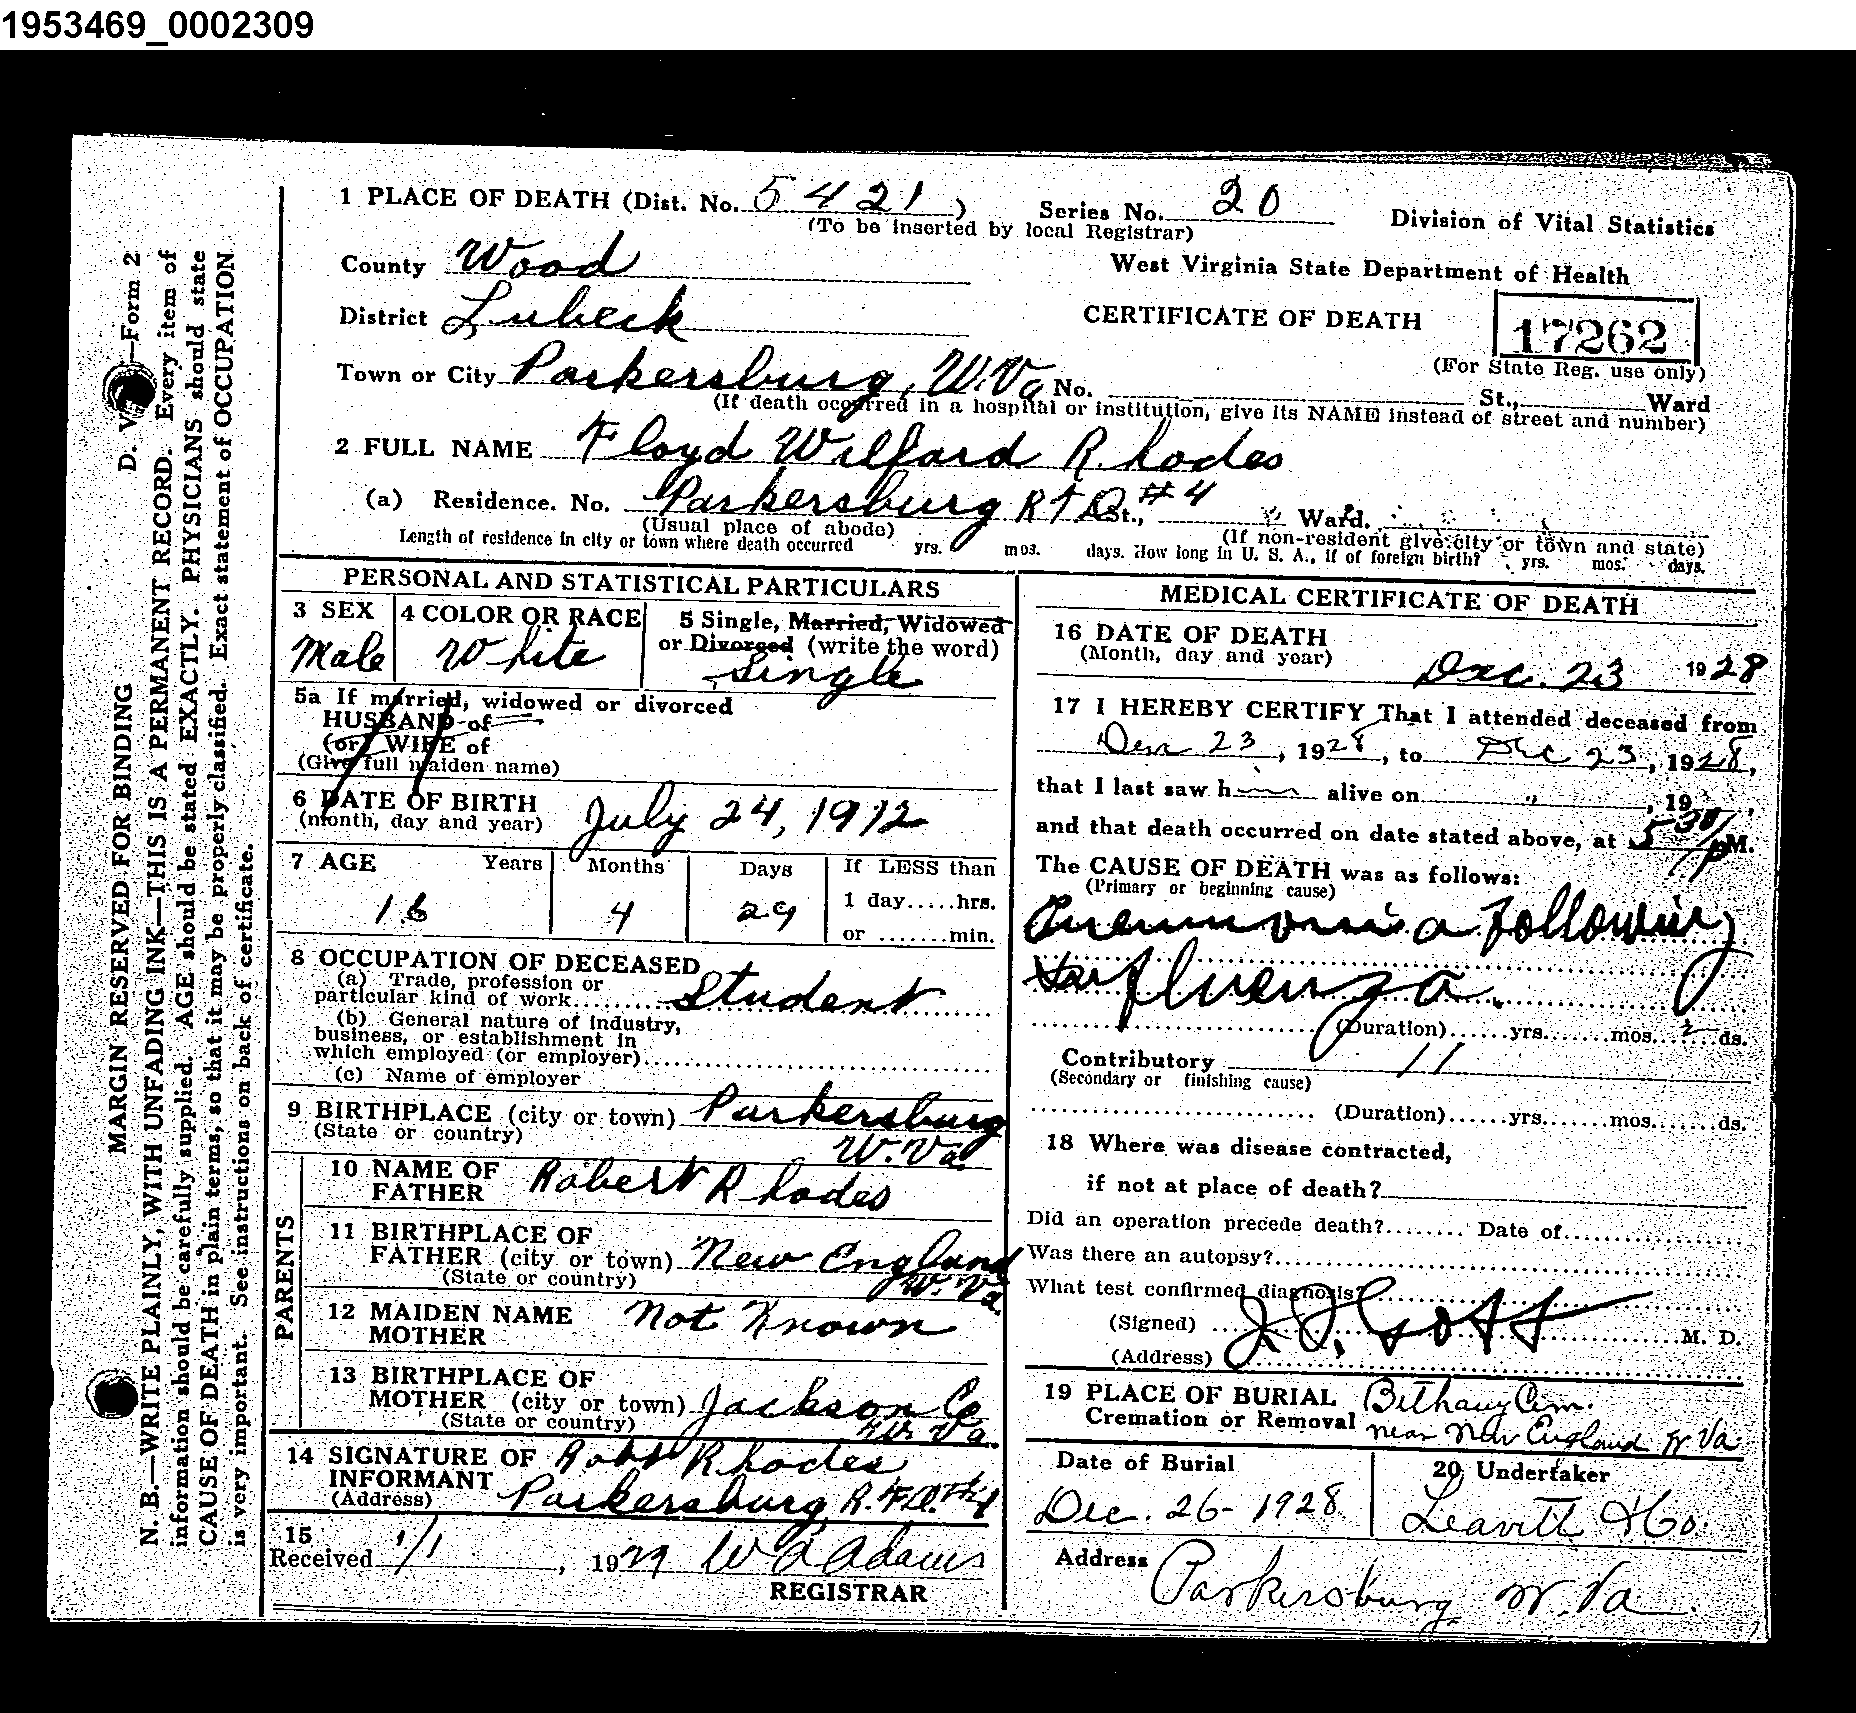 1953469_0002309
1 PLACE OF DEATH (Dist. No. 5421) Series No. 20 Division of Vital Statistics
(To be inserted by local Registrar)
County Wood West Virginia State Department of Health
District Lubeck CERTIFICATE OF DEATH 17262
(For State Reg. use only)
Town or City Parkersburg, W.Va No. St., Ward
(If death occurred in a hospital or institution, give its NAME instead of street and number)
2 FULL NAME Floyd Wilford Rhodes
(a) Residence. No. Parkersburg R F D #4 St., Ward.
(Usual place of abode) (If non-resident give city or town and state)
Length of residence in city or town where death occurred yrs. mos. days. How long in U. S. A., if of foreign birth? yrs. mos. days.
PERSONAL AND STATISTICAL PARTICULARS
3 SEX 4 COLOR OR RACE 5 Single, Married, Widowed
or Divorced (write the word)
Male White Single
5a If married, widowed or divorced
HUSBAND of
(or) WIFE of
(Give full maiden name)
6 DATE OF BIRTH
(month, day and year) July 24, 1912
7 AGE Years Months Days If LESS than
1 day.....hrs.
16 4 29
or .......min.
8 OCCUPATION OF DECEASED
(a) Trade, profession or
particular kind of work Student
(b) General nature of industry,
business, or establishment in
which employed (or employer)
(c) Name of employer
9 BIRTHPLACE (city or town) Parkersburg
(State or country) W.Va.
PARENTS
10 NAME OF
FATHER Robert Rhodes
11 BIRTHPLACE OF
FATHER (city or town) New England
(State or country) W.Va.
12 MAIDEN NAME
MOTHER Not Known
13 BIRTHPLACE OF
MOTHER (city or town) Jackson Co
(State or country) W. Va.
14 SIGNATURE OF
INFORMANT Robt Rhodes
(Address) Parkersburg, R.F.D. #4
15
Received 1/1, 1929 W A Adams
REGISTRAR
MEDICAL CERTIFICATE OF DEATH
16 DATE OF DEATH
(Month, day and year) Dec. 23 1928
17 I HEREBY CERTIFY That I attended deceased from
Dec 23, 1928, to Dec 23, 1928,
that I last saw him alive on " , 19 ,
and that death occurred on date stated above, at 5 30/P M.
The CAUSE OF DEATH was as follows:
(Primary or beginning cause)
Pneumonia following
Influenza.
(Duration)......yrs.......mos. 2 ds.
Contributory 11
(Secondary or finishing cause)
(Duration)......yrs.......mos.......ds.
18 Where was disease contracted,
if not at place of death?
Did an operation precede death?........ Date of
Was there an autopsy?
What test confirmed diagnosis?
(Signed) M. D.
(Address)
19 PLACE OF BURIAL Bethany Cem.
Cremation or Removal near New England W Va
Date of Burial 20 Undertaker
Dec. 26- 1928 Leavitt & Co.
Address Parkersburg W. Va.
D. V. —Form 2
MARGIN RESERVED FOR BINDING
N. B.—WRITE PLAINLY, WITH UNFADING INK—THIS IS A PERMANENT RECORD. Every item of
information should be carefully supplied. AGE should be stated EXACTLY. PHYSICIANS should state
CAUSE OF DEATH in plain terms, so that it may be properly classified. Exact statement of OCCUPATION
is very important. See instructions on back of certificate.